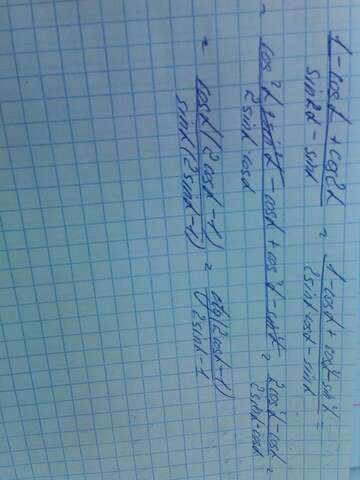 (1 - cosα + cos2α) / (sin2α - sinα) = (1 - cosα + cos²α - sin²α) / (2sinα cosα - sinα) =
= (cos²α + sin²α - cosα + cos²α - sin²α) / (2sinα cosα) = (2cos²α - cosα) / (2sinα - cosα) =
= cosα(2cosα - 1) / sinα(2sinα - 1) = ctg(2cosα - 1) / (2sinα - 1)